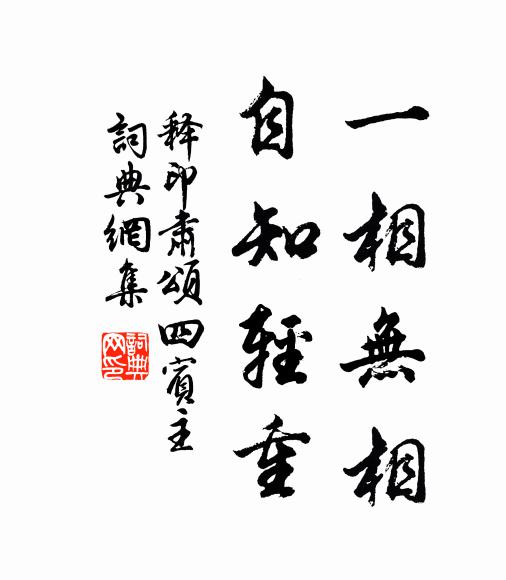 一相無相
自知輕重
释印肃頌四賓主
詞典網集
詞典网印